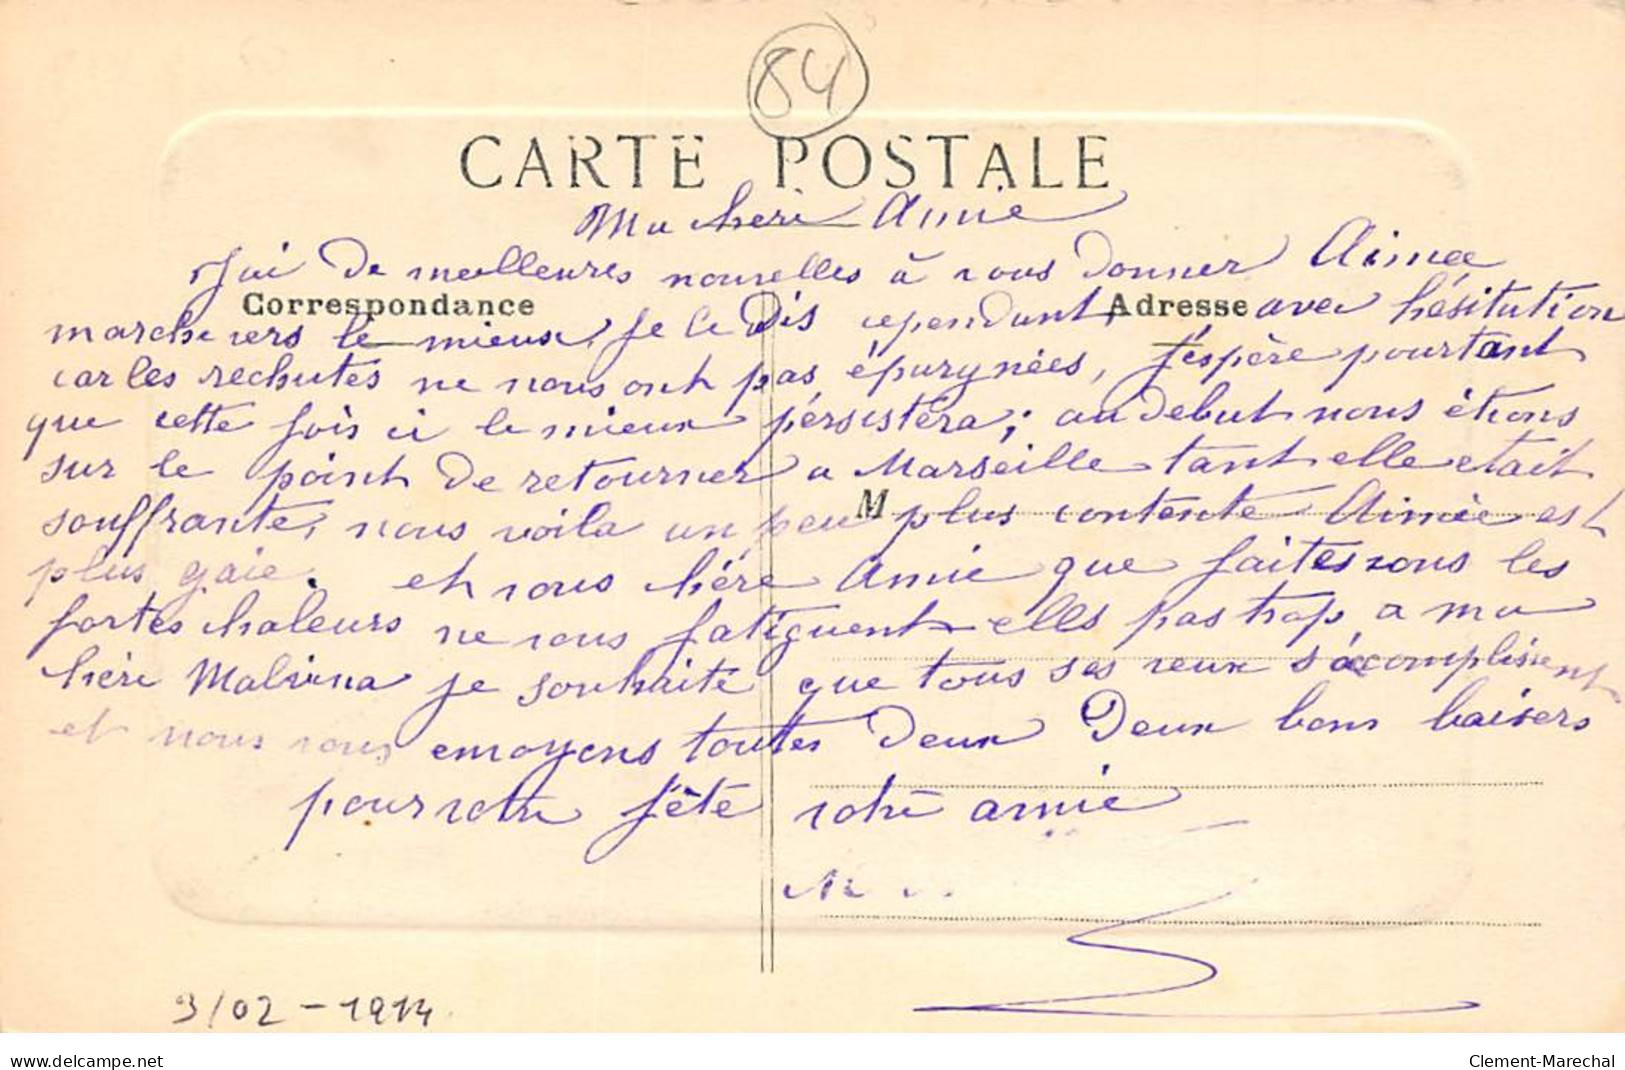 84
CARTE POSTALE
Ma chere Amie
J'ai de meilleures nouvelles à vous donner Aimée
Correspondance
Adresse
marche vers le mieux, je le dis cependant, avec hésitation
car les rechutes ne nous ont pas épargnées, j'éspère pourtant
que cette fois ci le mieux pérsistéra; au debut nous étions
sur le point de retourner a Marseille tant elle etait
souffrante, nous voila un peu plus contente Aimée est
M
plus gaie. et vous chére Amie que faites vous les
fortes chaleurs ne vous fatiguent elles pas trop, a ma
chére Malvina je souhaite que tous ses veux s'accomplissent
et nous vous envoyons toutes deux deux bons baisers
pour votre fête votre amie
3/02-1914
delcampe.net
Clement-Marechal